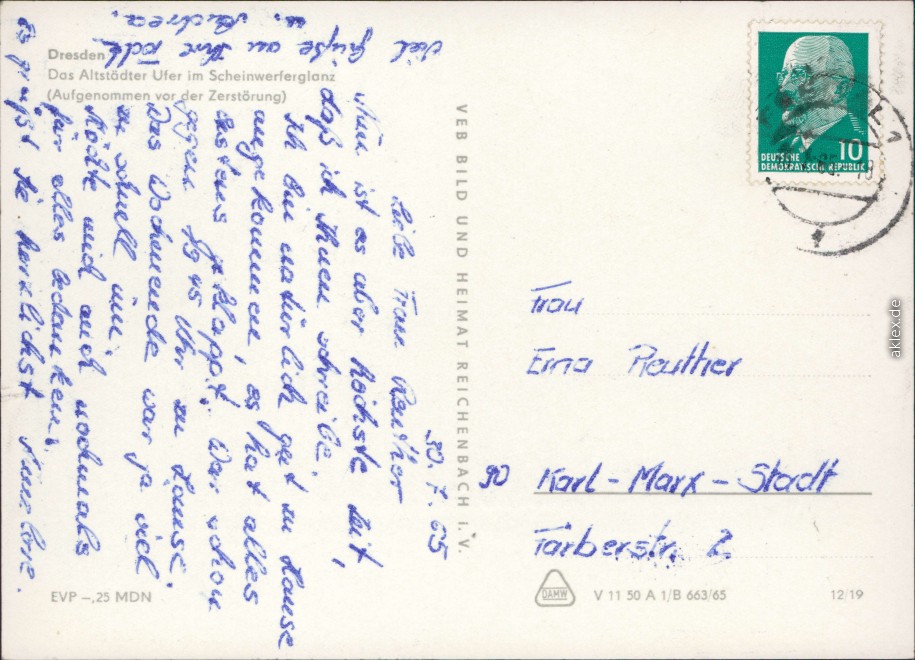 Dresden
Das Altstädter Ufer im Scheinwerferglanz
(Aufgenommen vor der Zerstörung)
30.7.65
Liebe Frau Reuther
Nun ist es aber höchste Zeit,
daß ich Ihnen schreibe.
Ich bin natürlich gut zu Hause
angekommen, es hat alles
bestens geklappt. War schon
gegen 1945 Uhr zu Hause.
Das Wochenende war ja viel
zu schnell um.
Möchte mich auch nochmals
für alles bedanken.
Es grüßt Sie herzlichst Annelore.
Viel Grüße an Ihre
u. Andrea.
VEB BILD UND HEIMAT REICHENBACH i. V.
10
DEUTSCHE
DEMOKRATISCHE REPUBLIK
Frau
Erna Reuther
90 Karl-Marx-Stadt
Färberstr. 2
EVP –,25 MDN
DAMW
V 11 50 A 1/B 663/65
12/19
aklex.de